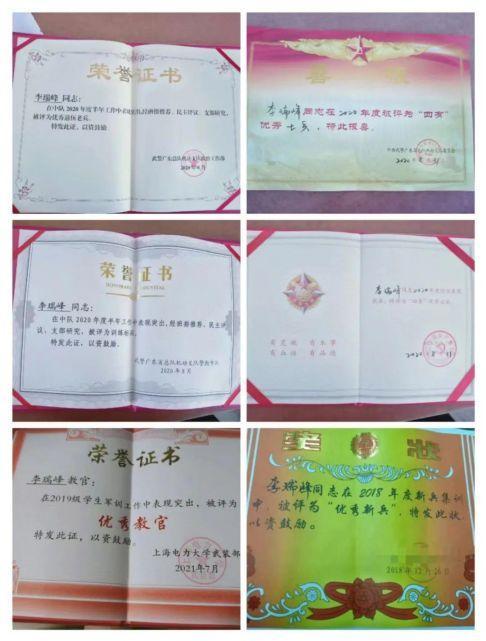 荣誉证书
李瑞峰 同志：
在中队2020年度半年工作中
民主评议、支部研究，
被评为优秀退伍老兵。
特发此证，以资鼓励
2020年8月
喜报
李瑞峰同志在2020年度被评为“四有”
优秀士兵，特此报喜。
荣誉证书
李瑞峰 同志：
在中队2020年度半年工作中表现突出，经班排推荐、民主评
议、支部研究，被评为训练标兵。
特发此证，以资鼓励。
武警广东省总队机动支队
2020年8月
李瑞峰
有灵魂 有本事
有血性 有品德
荣誉证书
李瑞峰 教官：
在2019级学生军训工作中表现突出，被评为
优秀教官
特发此证，以资鼓励。
上海电力大学武装部
2021年7月
奖状
李瑞峰同志在2018年度新兵集训
中，被评为“优秀新兵”，特发此状，
以资鼓励。
2018年12月26日